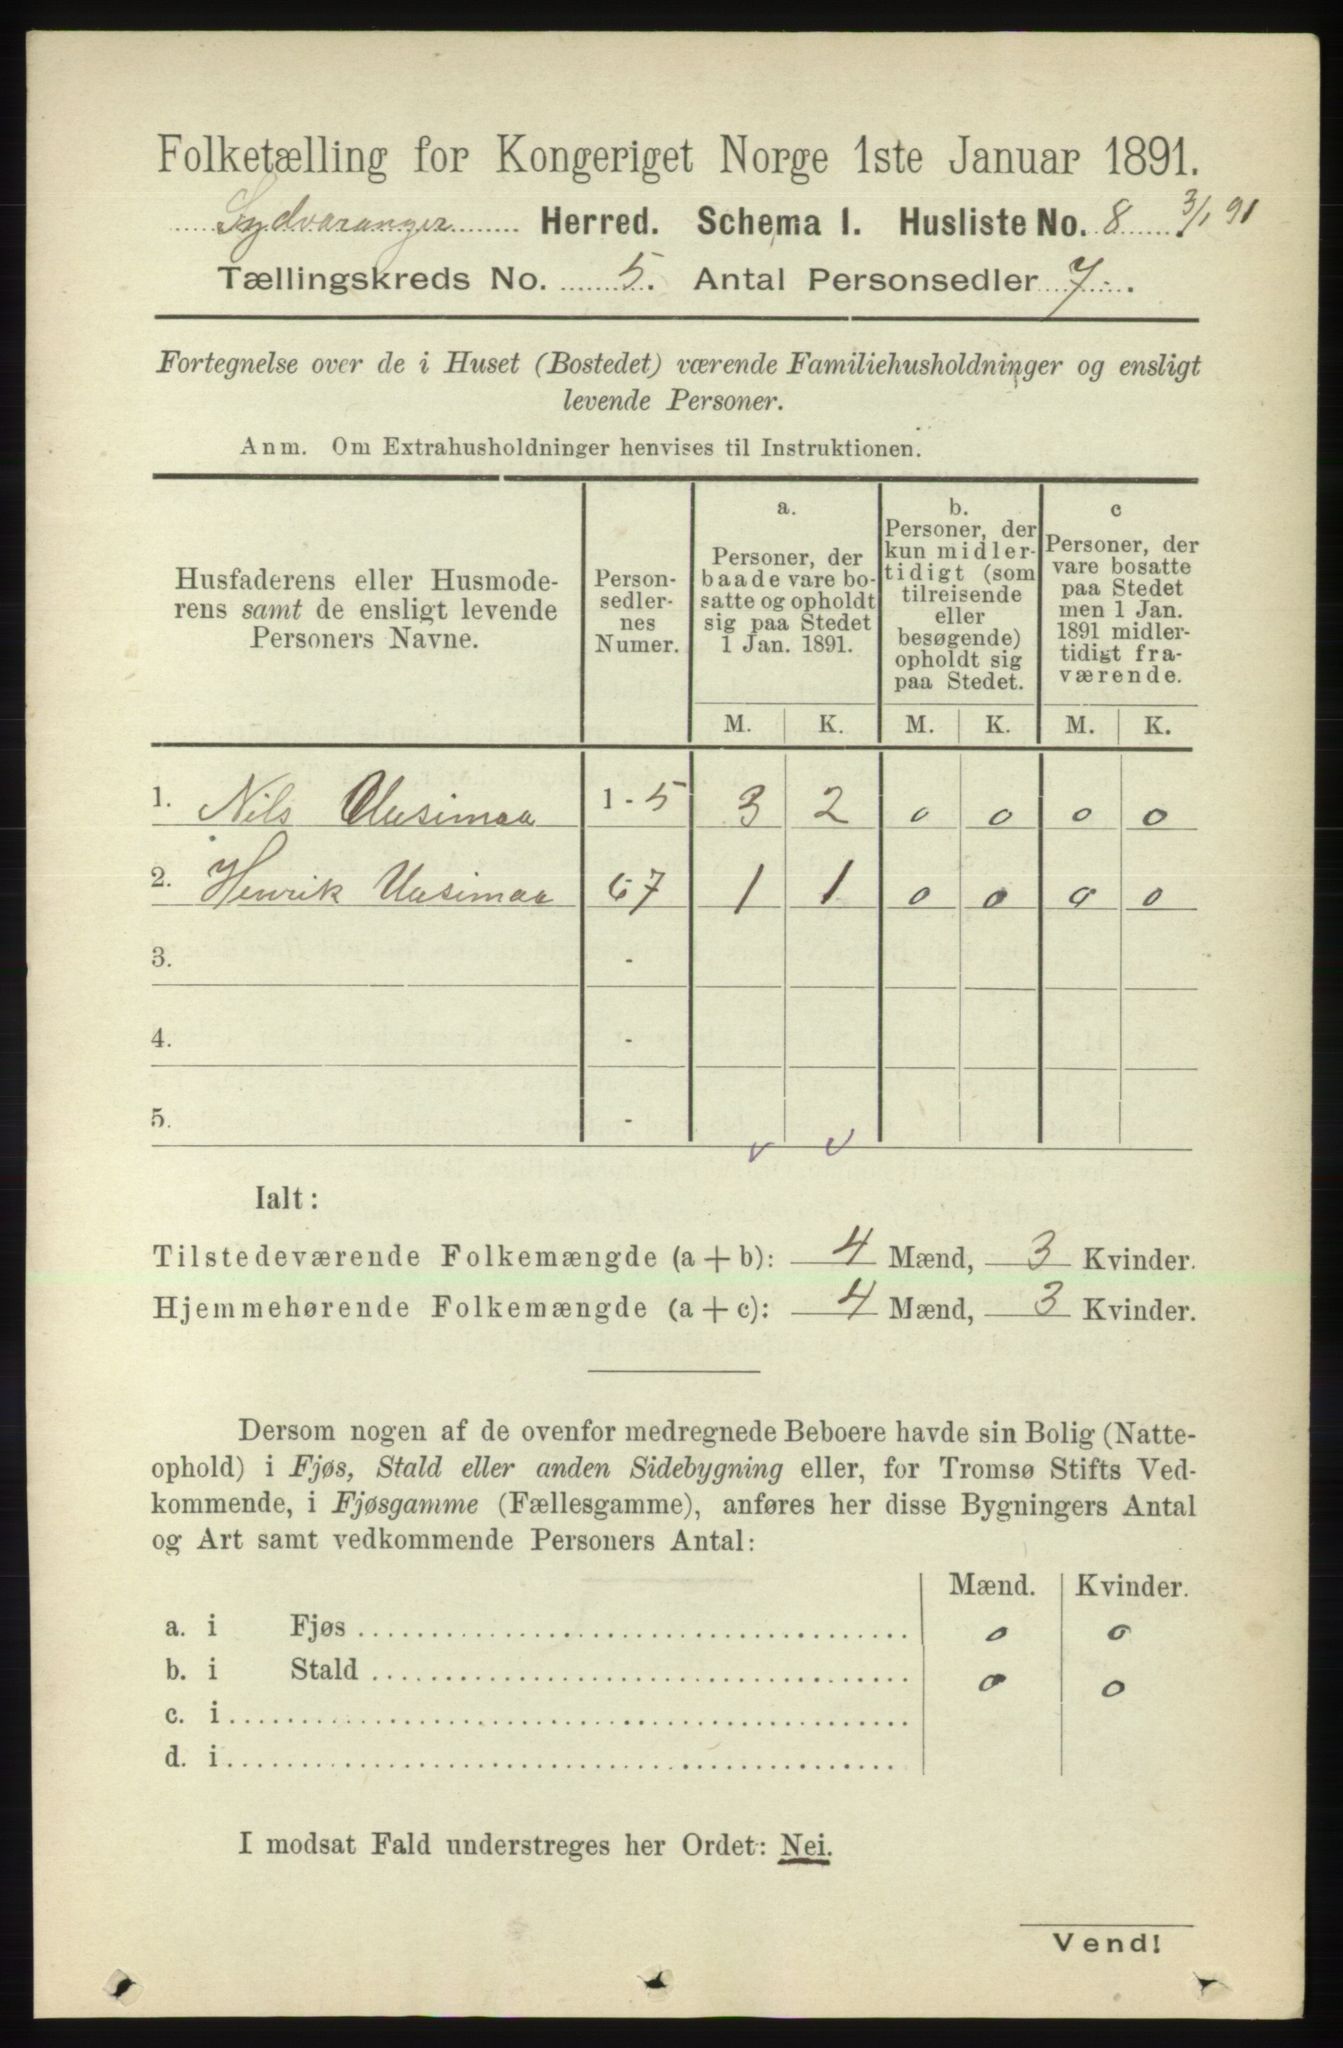 Folketælling for Kongeriget Norge 1ste Januar 1891.
Sydvaranger Herred. Schema I. Husliste No. 8 3/1 91
Tællingskreds No. 5. Antal Personsedler 7.
Fortegnelse over de i Huset (Bostedet) værende Familiehusholdninger og ensligt
levende Personer.
Anm. Om Extrahusholdninger henvises til Instruktionen.
Husfaderens eller Husmode-
rens samt de ensligt levende
Personers Navne.
Person-
sedler-
nes
Numer.
a.
Personer, der
baade vare bo-
satte og opholdt
sig paa Stedet
1 Jan. 1891.
b.
Personer, der
kun midler-
tidigt (som
tilreisende
eller
besøgende)
opholdt sig
paa Stedet.
c
Personer, der
vare bosatte
paa Stedet
men 1 Jan.
1891 midler-
tidigt fra-
værende.
M. K. M. K. M. K.
1. Nils Uusimaa 1-5 3 2 0 0 0 0
2. Henrik Uusimaa 67 1 1 0 0 0 0
3. -
4. -
5. -
Ialt:
Tilstedeværende Folkemængde (a + b): 4 Mænd, 3 Kvinder.
Hjemmehørende Folkemængde (a + c): 4 Mænd, 3 Kvinder.
Dersom nogen af de ovenfor medregnede Beboere havde sin Bolig (Natte-
ophold) i Fjøs, Stald eller anden Sidebygning eller, for Tromsø Stifts Ved-
kommende, i Fjøsgamme (Fællesgamme), anføres her disse Bygningers Antal
og Art samt vedkommende Personers Antal:
Mænd. Kvinder.
a. i Fjøs 0 0
b. i Stald 0 0
c. i
d. i
I modsat Fald understreges her Ordet: Nei.
Vend!